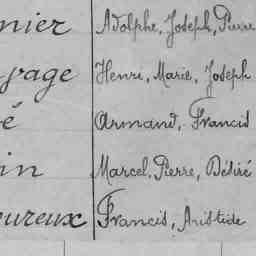 nier Adolphe, Joseph, Pierre
yage Henri, Marie, Joseph
é Armand, Francis
in Marcel, Pierre, Désiré
oureux Francis, Aristide